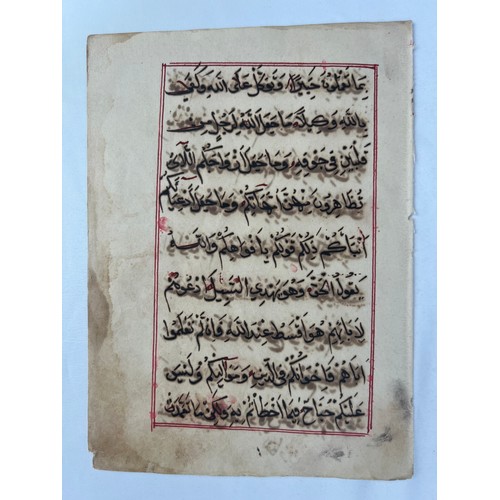 بما تعملون خبيرا وتوكل على الله وكفى
بالله وكيلا ما جعل الله لرجل من
قلبين في جوفه وما جعل ازواجكم اللائي
تظاهرون منهن امهاتكم وما جعل ادعياءكم
ابناءكم ذلكم قولكم بافواهكم والله
يقول الحق وهو يهدي السبيل ادعوهم
لابائهم هو اقسط عند الله فان لم تعلموا
اباءهم فاخوانكم في الدين ومواليكم وليس
عليكم جناح فيما اخطأتم به ولكن ما تعمدت